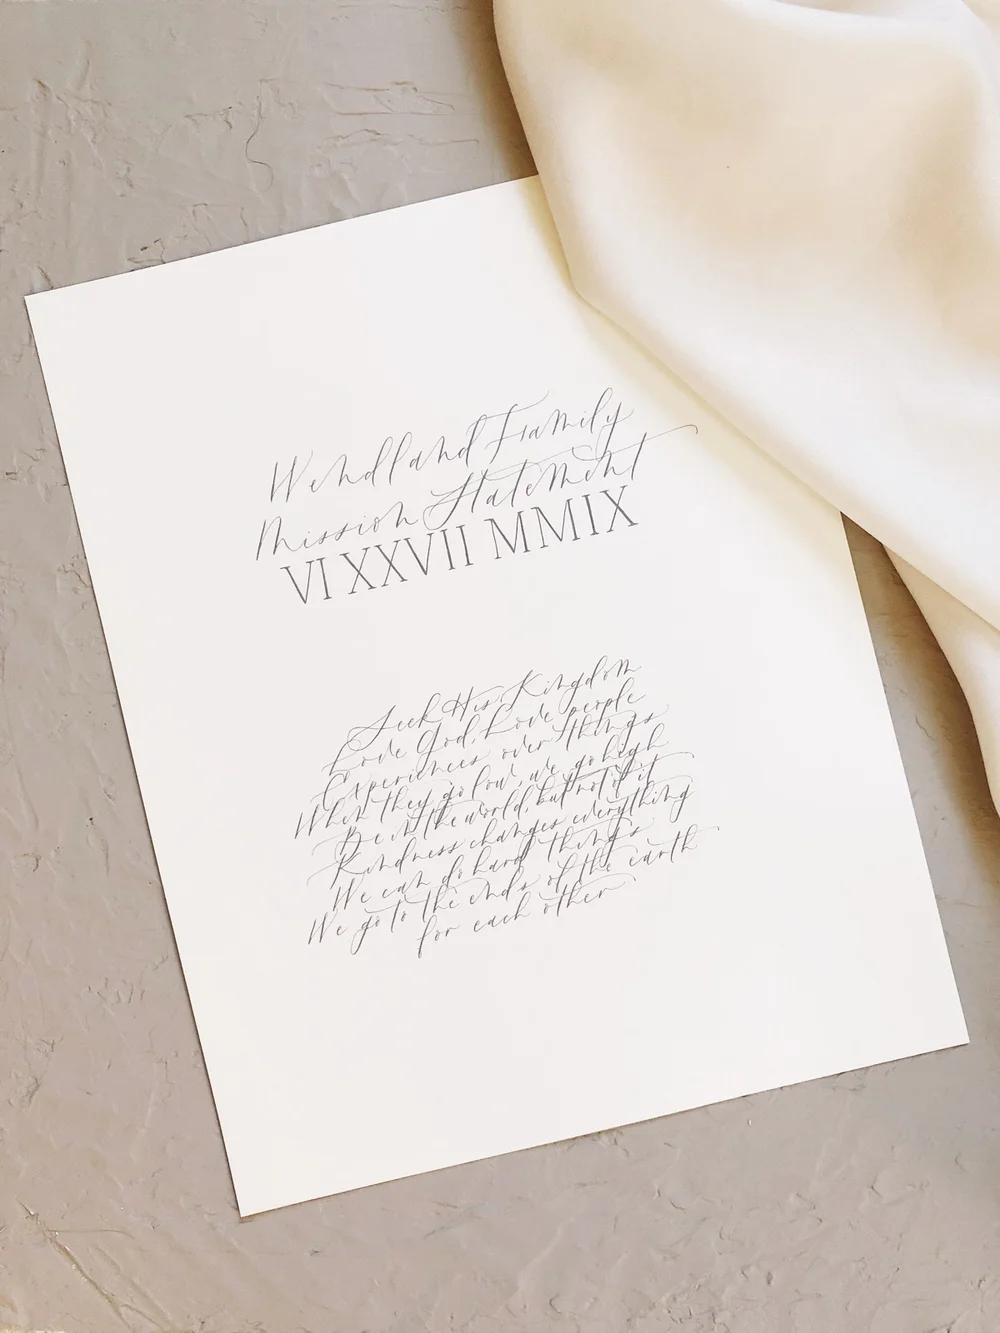 Wendland Family
Mission Statement
VI XXVII MMIX
Seek His Kingdom
Love God, Love people
Experiences over things
When they go low, we go high
Be in the world, but not of it
Kindness changes everything
We can do hard things
We go to the ends of the earth
for each other